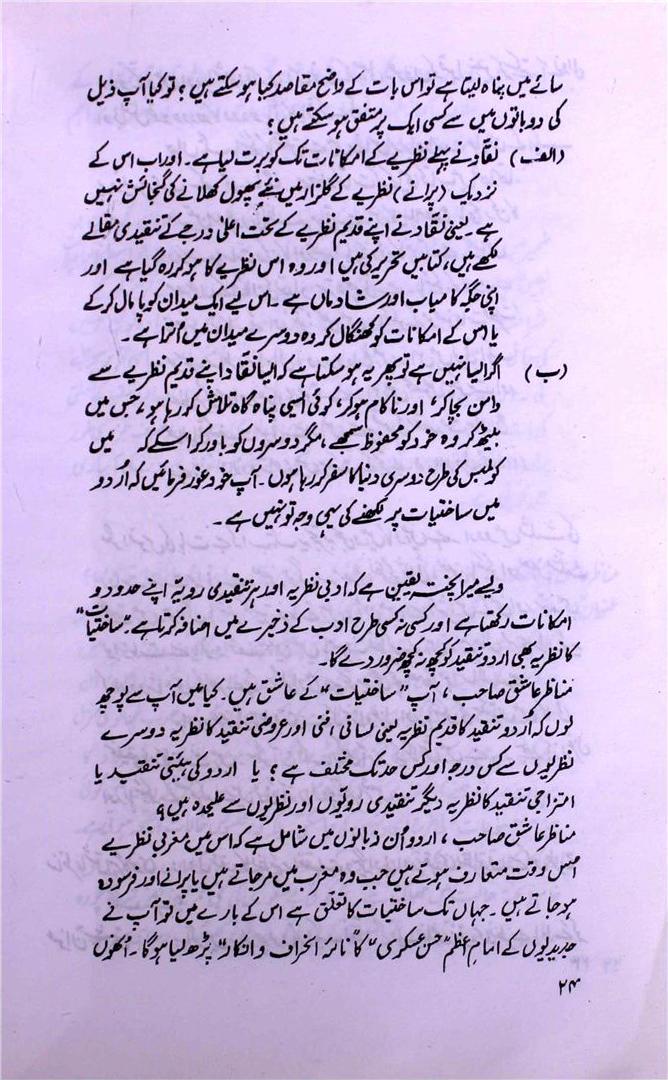 سائے میں پناہ لیتا ہے تو اس بات کے واضح مقاصد کیا ہو سکتے ہیں؟ تو کیا آپ ذیل
کی دو باتوں میں سے کسی ایک پر متفق ہو سکتے ہیں؟
(الف) نقّاد نے پہلے نظریے کے امکانات تک کو برت لیا ہے۔ اور اب اس کے
نزدیک (پرانے) نظریے کے گلزار میں نئے پھول کھلانے کی گنجائش نہیں
ہے۔ یعنی نقّاد نے اپنے قدیم نظریے کے تحت اعلیٰ درجے کے تنقیدی مقالے
لکھے ہیں، کتابیں تحریر کی ہیں اور وہ اس نظریے کا ہو کر رہ گیا ہے اور
اپنی جگہ کامیاب اور شادماں ہے۔ اس لیے ایک میدان کو پامال کر کے
یا اس کے امکانات کو کھنگال کر وہ دوسرے میدان میں اُترا ہے۔
(ب) اگر ایسا نہیں ہے تو پھر یہ ہو سکتا ہے کہ ایسا نقّاد اپنے قدیم نظریے سے
دامن بچا کر، اور ناکام ہو کر، کوئی ایسی پناہ گاہ تلاش کر رہا ہو، جس میں
بیٹھ کر وہ خود کو محفوظ سمجھے، مگر دوسروں کو باور کرا سکے کہ میں
کولمبس کی طرح دوسری دنیا کا سفر کر رہا ہوں۔ آپ خود غور فرمائیں کہ اُردو
میں ساختیات پر لکھنے کی یہی وجہ تو نہیں ہے۔
ویسے میرا پختہ یقین ہے کہ ادبی نظریہ اور ہر تنقیدی رویّہ اپنے حدود و
امکانات رکھتا ہے اور کسی نہ کسی طرح ادب کے ذخیرے میں اضافہ کرتا ہے۔ "ساختیات"
کا نظریہ بھی اردو تنقید کو کچھ نہ کچھ ضرور دے گا۔
مناظر عاشق صاحب، آپ "ساختیات" کے عاشق ہیں۔ کیا میں آپ سے پوچھ
لوں کہ اُردو تنقید کا قدیم نظریہ یعنی لسانی، فنی اور عروضی تنقید کا نظریہ دوسرے
نظریوں سے کس درجہ اور کس حد تک مختلف ہے؟ یا اردو کی ہیئتی تنقید یا
امتزاجی تنقید کا نظریہ دیگر تنقیدی رویّوں اور نظریوں سے علیحدہ ہیں؟
مناظر عاشق صاحب، اردو اُن زبانوں میں شامل ہے کہ اس میں مغربی نظریے
اُس وقت متعارف ہوتے ہیں جب وہ مغرب میں مر جاتے ہیں یا پرانے اور فرسودہ
ہو جاتے ہیں۔ جہاں تک ساختیات کا تعلق ہے اس کے بارے میں تو آپ نے
جدیدیوں کے امامِ اعظم "حسن عسکری" کا "نائرہ انحراف و افکار" پڑھ لیا ہوگا۔ اُنھوں
۲۴